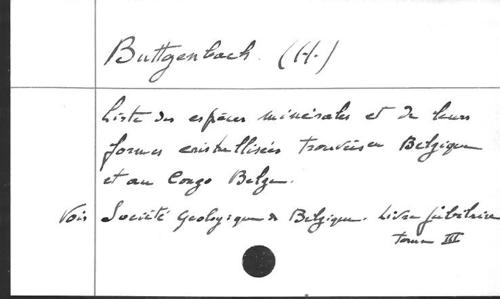 Buttgenbach. (H.)
Liste des espèces minérales et de leurs
formes cristallisées trouvées en Belgique
et au Congo Belge.
Voir Société Géologique de Belgique. Livre jubilaire
tome III